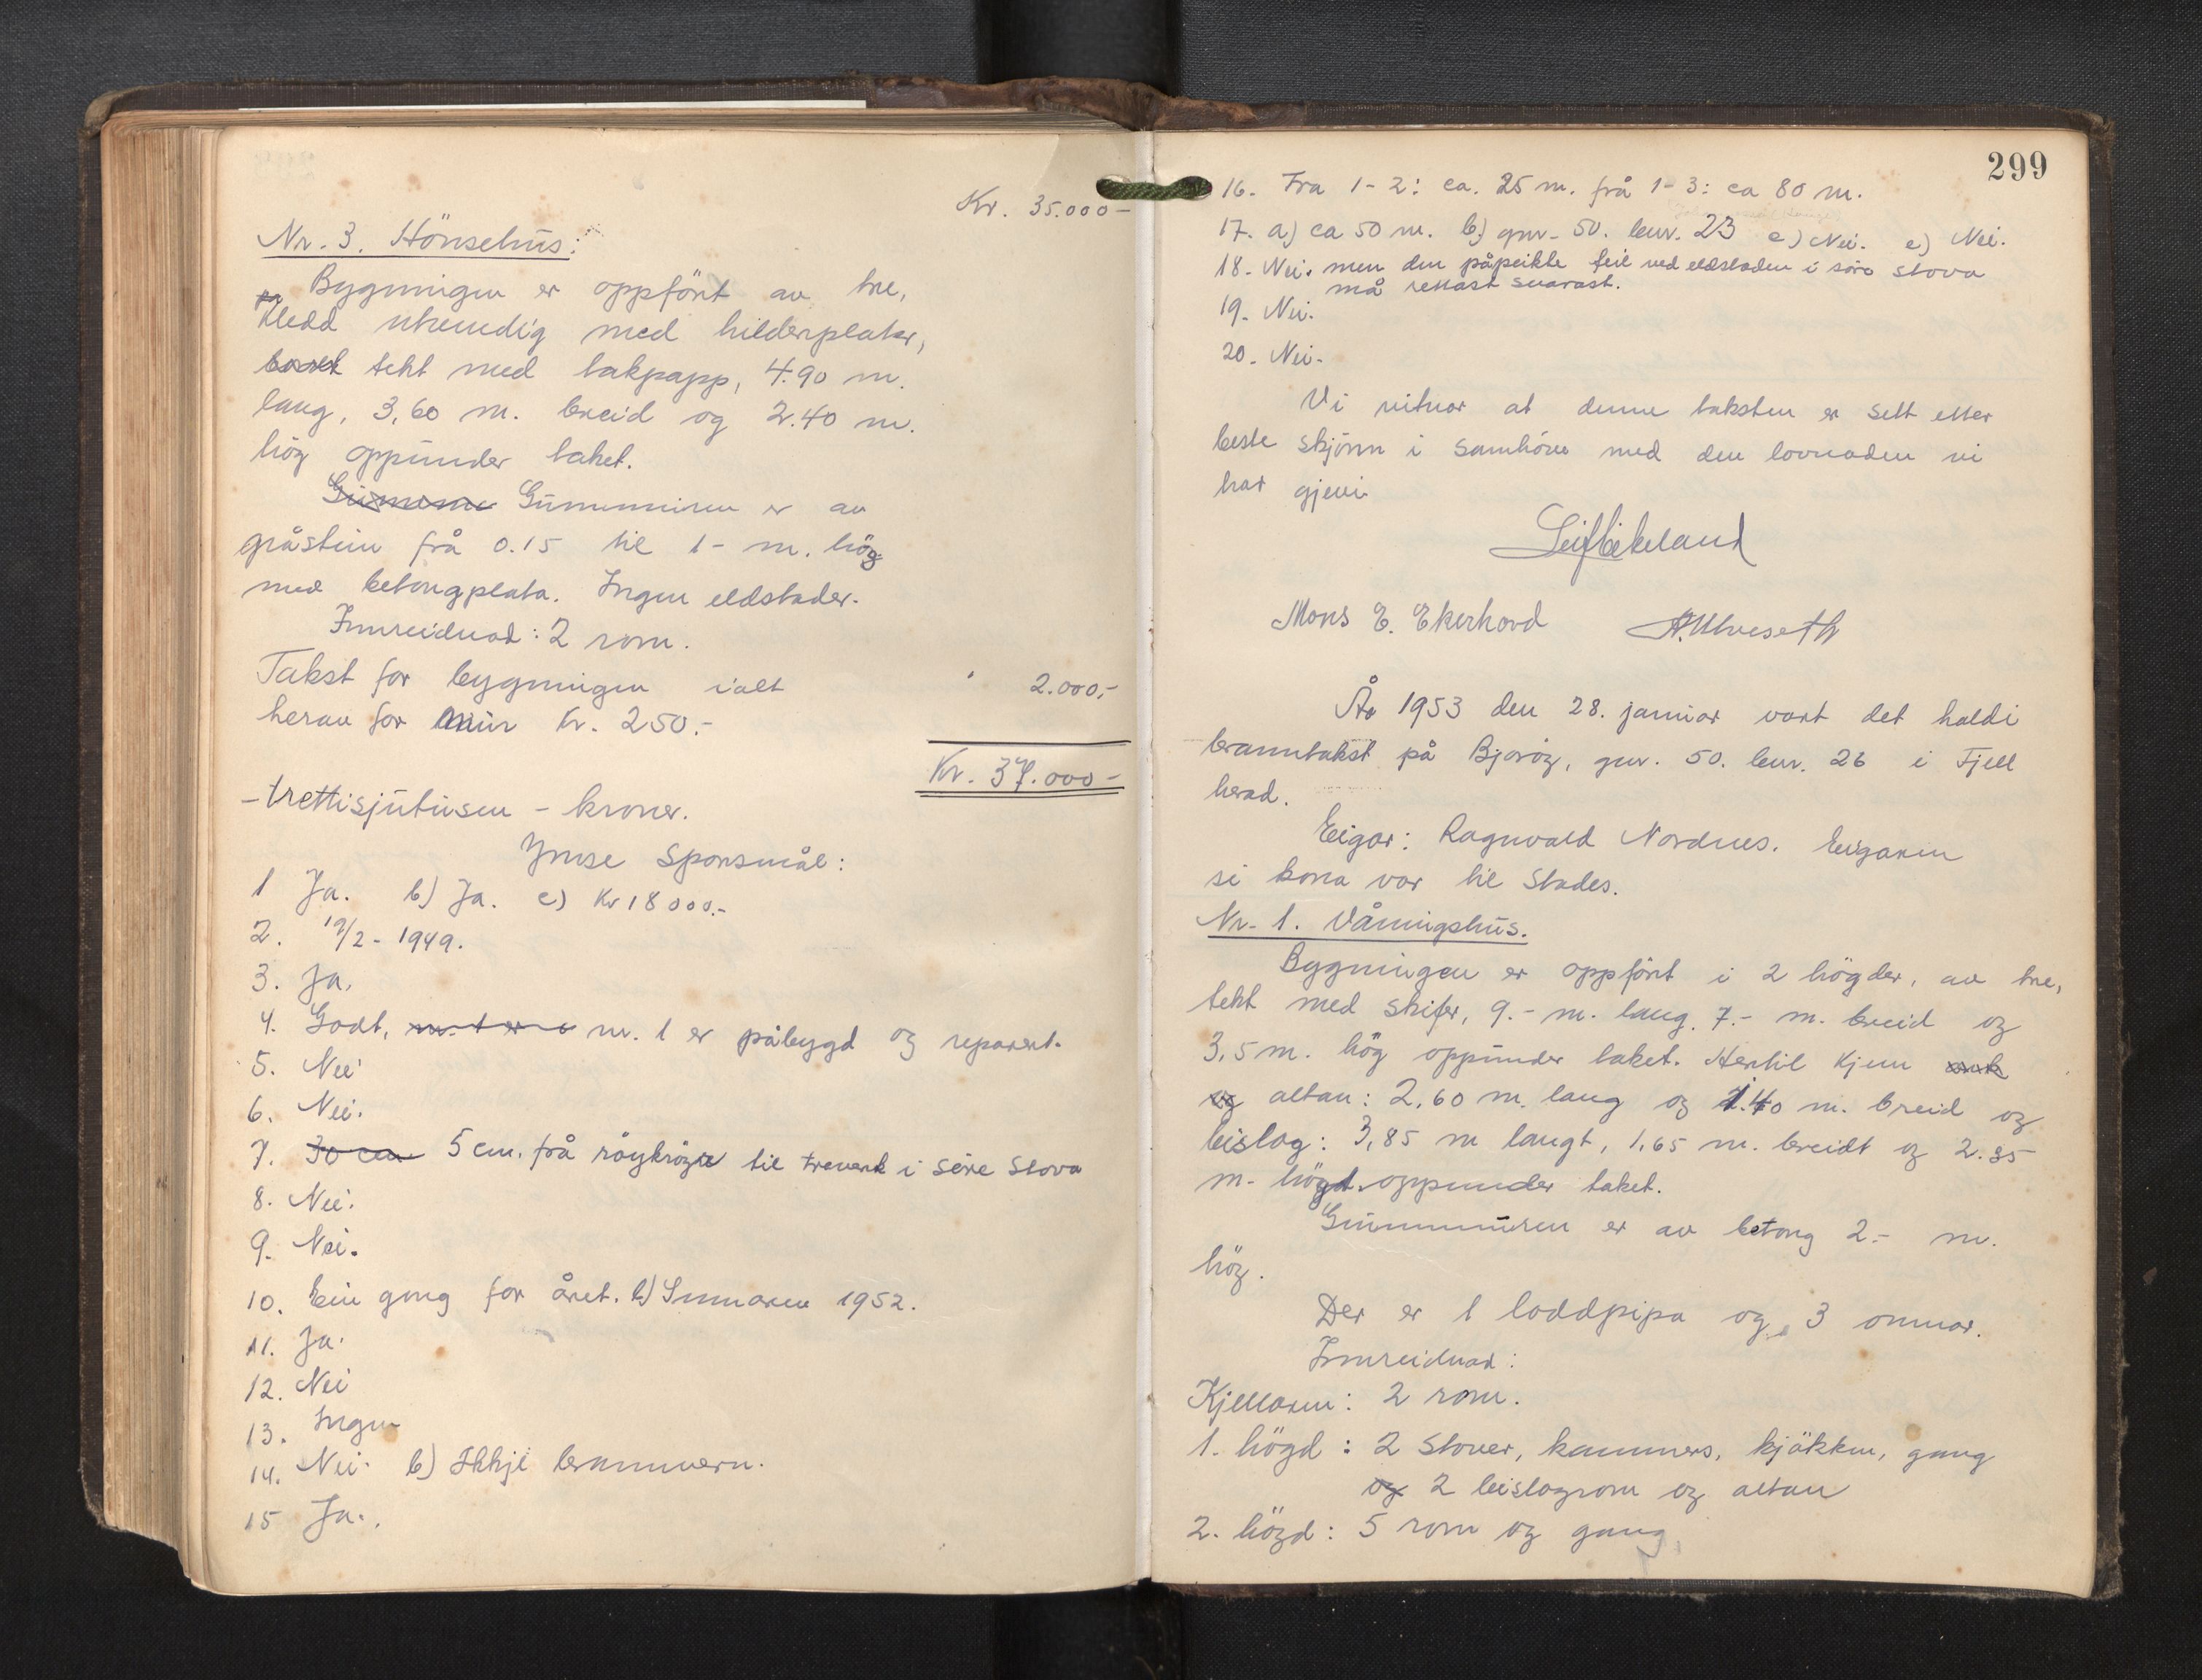 Kr. 35.000-
Nr. 3. Hönsehús:
Bygningen er oppfört av tre,
kledd utvendig med hilderplater,
tekt med takpapp, 4.90 m.
lang, 3,60 m. breid og 2.40 m.
hög oppúnder taket.
Grúnnmúren er av
gråstein frå 0.15 til 1- m. hög
med betongplata. Ingen eldstader.
Innreidnad: 2 rom.
Takst for bygningen ialt 2.000,-
herav for múr Kr. 250.-
Kr. 37.000-
-trettisjútúsen - kroner.
Ymse Spörsmål:
1 Ja. b) Ja. c) Kr 18000.-
2. 19/2- 1949.
3. Ja.
4. Godt, nr. 1 er påbygd og reparert.
5. Nei
6. Nei.
7. 30 cm 5 cm. frå röykröyr til treverk i söre Stova
8. Nei.
9. Nei.
10. Ein gong for året. b) Sumaren 1952.
11. Ja.
12. Nei
13. Ingen
14. Nei. b) Ikkje brannvern.
15 Ja.
299
16. Fra 1-2: ca. 25 m. frå 1-3: ca 80 m.
17. a) ca 50 m. b) gnr. 50. bnr. 23 c) Nei. e) Nei.
18. Nei. men den påpeikte feil ved eldstaden i söre stova
må rettast snarast.
19. Nei.
20. Nei.
Vi vitnar at denne taksten er sett etter
beste skjönn i samhöve med den lovnaden vi
har gjevi
Leif Eikeland
Mons E. Ekerhovd A. Ulveseth
År 1953 den 28. januar vart det haldi
branntakst på Bjoröy, gnr. 50. bnr. 26 i Fjell
herad.
Eigar: Ragnvald Nordnes. Eigaren
si kona var til Stades.
Nr. 1. Våningshús.
Bygningen er oppfört i 2 högder, av tre,
tekt med skifer, 9.- m. lang. 7.- m. breid og
3,5 m. hög oppúnder taket. Hertil kjem
altan: 2,60 m. lang og 1.40 m. breid og
bislag: 3,85 m langt, 1,65 m. breidt og 2.35
m. högt oppunder taket.
Grúnnmúren er av betong 2.- m.
hög.
Der er 1 loddpipa og 3 omnar.
Innreidnad:
Kjellaren: 2 rom.
1. högd: 2 Stover, kammers, kjökken, gang
og 2 bislagrom og altan
2. högd: 5 rom og gang